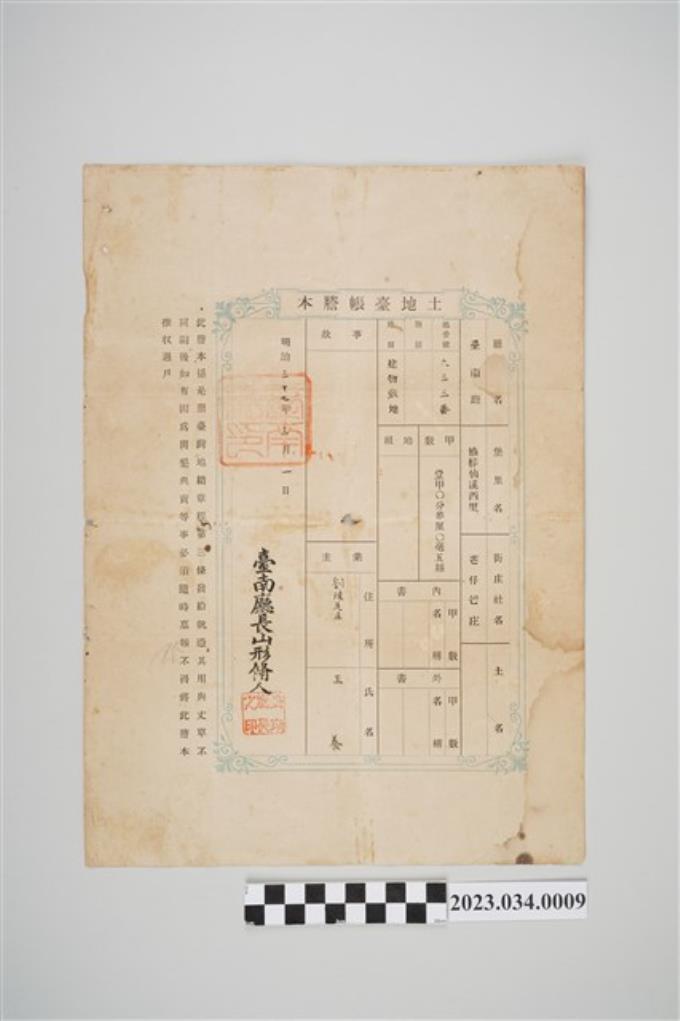 土地臺帳謄本
廳名
臺南廳
堡里名
西里
街庄社名
庄
土名
地番號
六三三番
地目
建物敷地
甲數
壹甲〇分
厘〇毫五絲
地租
內書
甲數
名稱
外書
甲數
名稱
事故
業主
住所
氏名
王養
明治三十七年
月一日
臺南廳長山形脩人
此謄本係是照臺灣地籍章程第三條發給就造其用與丈單不
同嗣後如有因為開墾典賣等事必須隨時稟報不得將此謄本
推收過戶
2023.034.0009